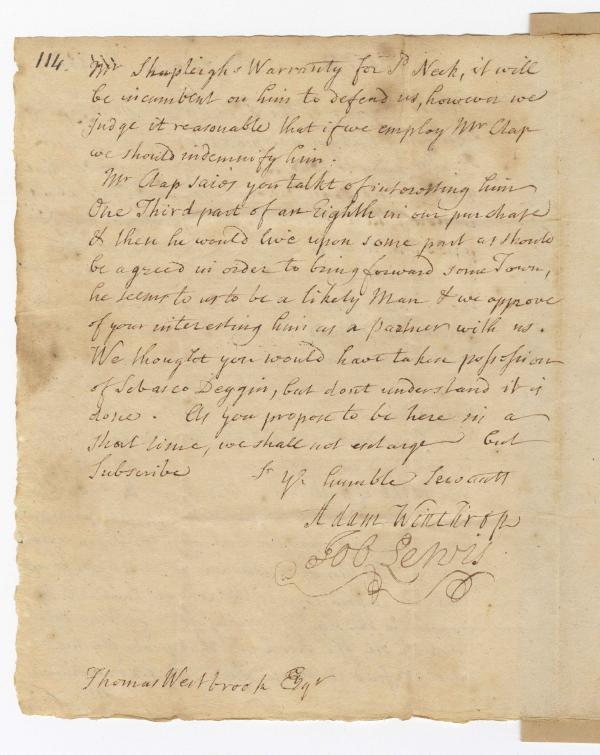 114.
Mr Shapleighs Warranty for sd Neck, it will
be incumbent on him to defend us, however we
judge it reasonable that if we employ Mr Clap
we should indemnify him.
Mr Clap saies you talkt of interesting him
One Third part of an Eighth in our purchase
& then he would live upon some part as should
be agreed in order to bring forward some Town,
he seems to us to be a likely Man & we approve
of your interesting him as a partner with us.
We thought you would have taken possession
of Sebasco Deggin, but dont understand it is
done. As you propose to be here in a
short time, we shall not enlarge but
Subscribe Sr Yr humble Servants
Adam Winthrop
Job Lewis
Thomas Westbrook Esqr